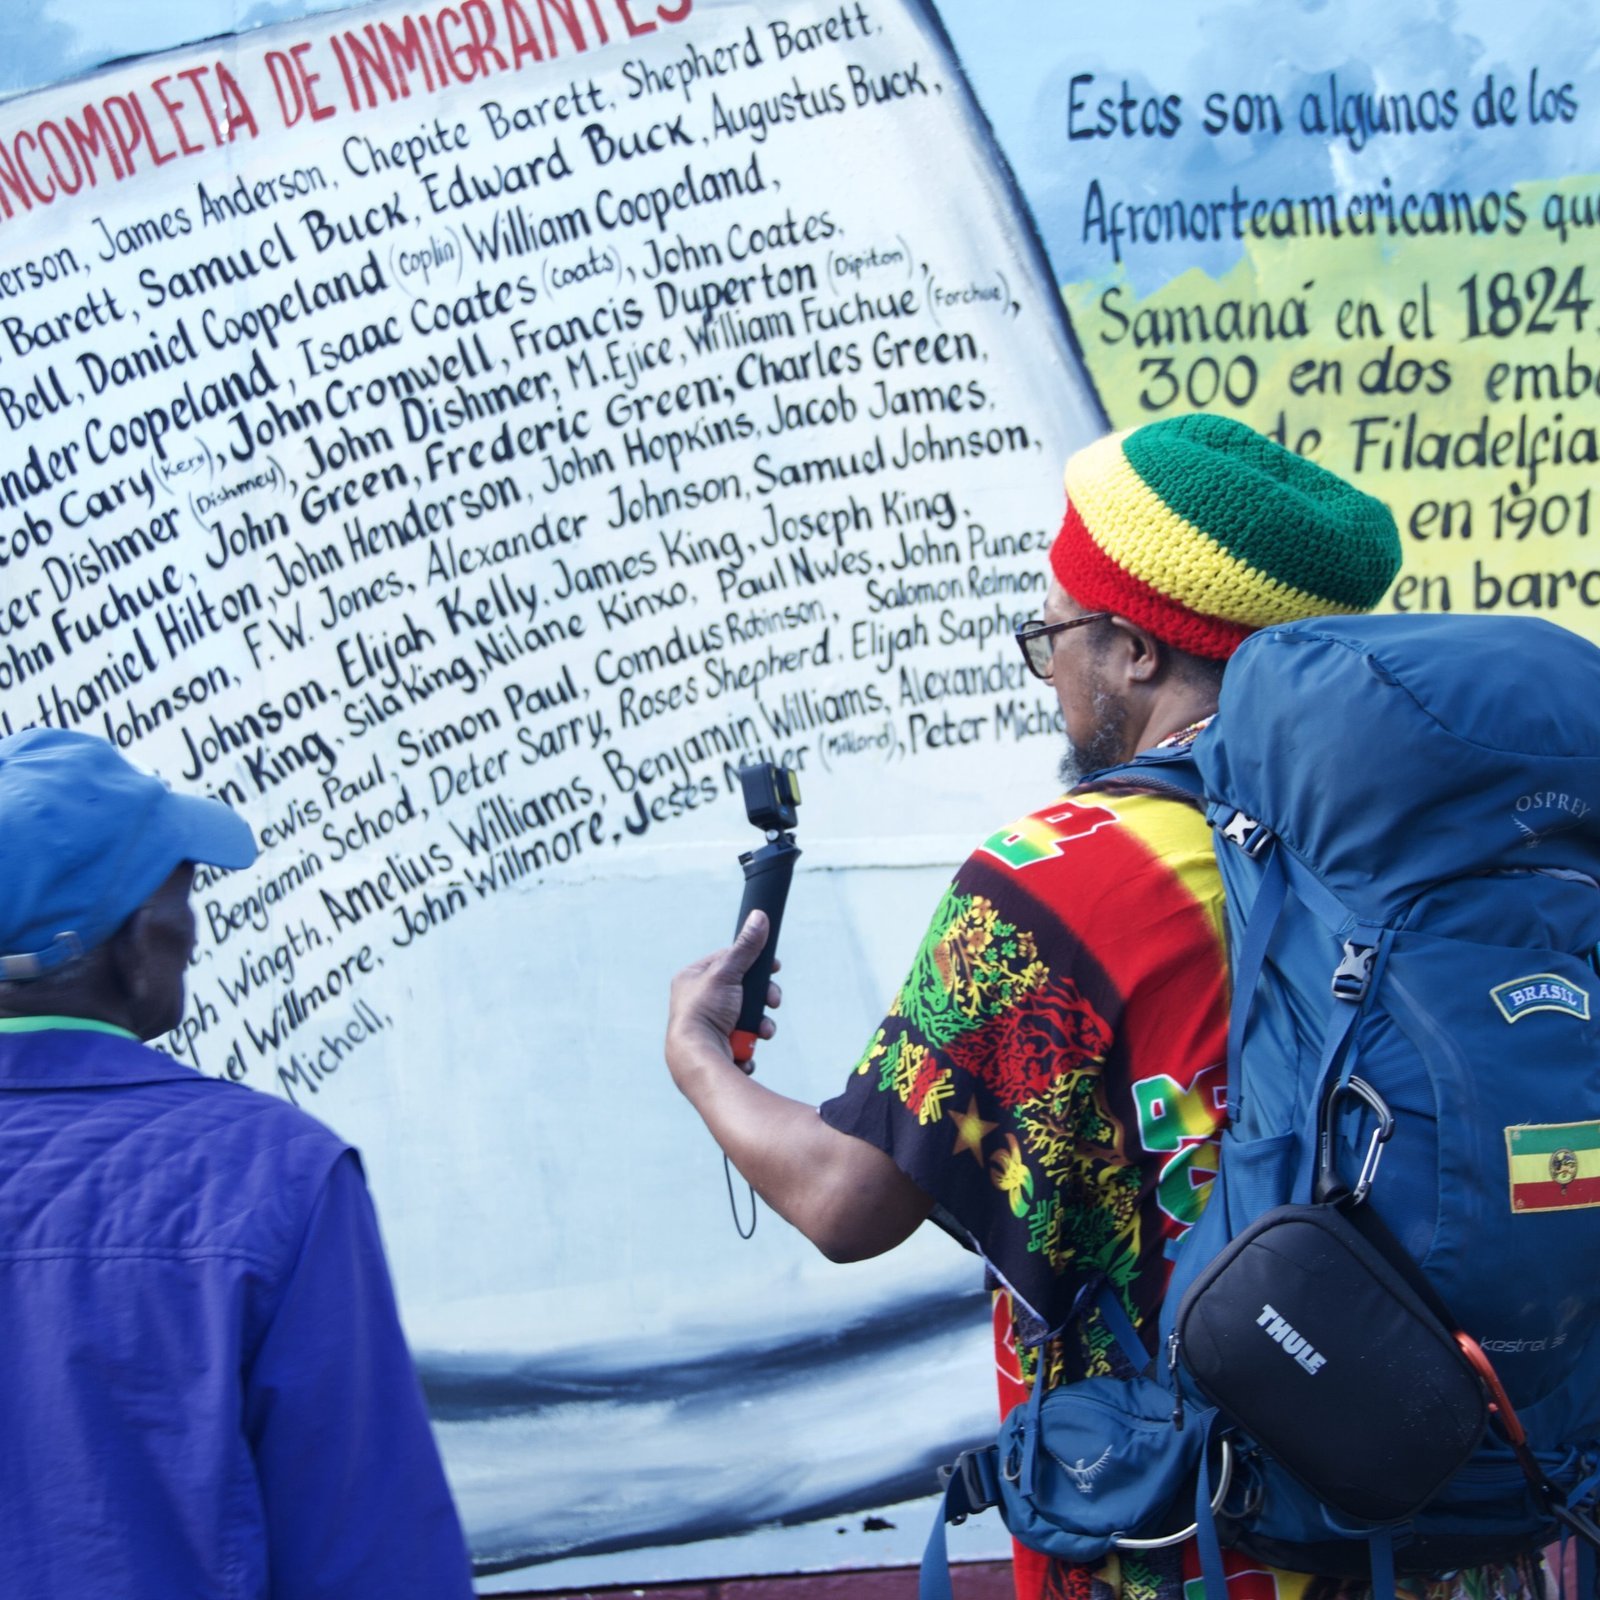 INCOMPLETA DE INMIGRANTES
erson, James Anderson, Chepite Barett, Shepherd Barett,
Barett, Samuel Buck, Edward Buck, Augustus Buck,
Bell, Daniel Coopeland (Coplin) William Coopeland,
nder Coopeland, Isaac Coates (Coats), John Coates,
cob Cary (Kery), John Cronwell, Francis Duperton (Dipiton),
ter Dishmer (Dishmey), John Dishmer, M. Ejice, William Fuchue (Forchue),
ohn Fuchue, John Green, Frederic Green; Charles Green,
Nathaniel Hilton, John Henderson, John Hopkins, Jacob James,
Johnson, F.W. Jones, Alexander Johnson, Samuel Johnson,
Johnson, Elijah Kelly, James King, Joseph King,
in King, Sila King, Nilane Kinxo, Paul Nwes, John Punez
Lewis Paul, Simon Paul, Comdus Robinson, Salomon Relmon
Benjamin Schod, Deter Sarry, Roses Shepherd, Elijah Sapher
seph Wingth, Amelius Williams, Benjamin Williams, Alexander
el Willmore, John Willmore, Jeses Miller (Millord), Peter Miche
Michell,
Estos son algunos de los
Afronorteamericanos que
Samaná en el 1824,
300 en dos emba
de Filadelfia
en 1901
en barc
OSPREY
BRASIL
THULE
kestrel